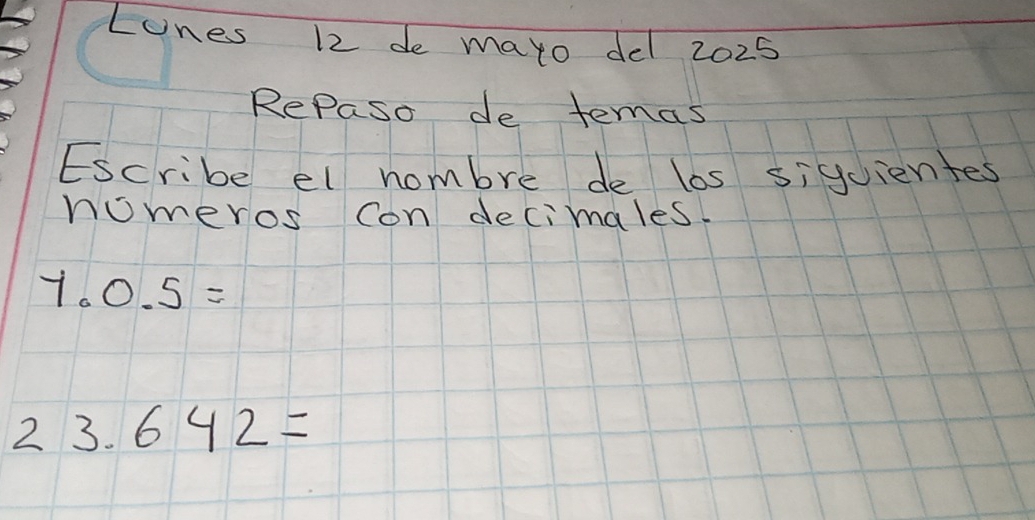 Lunes 12 de mayo del 2025
Repaso de temas
Escribe el nombre de los siguientes
números con decimales.
1.0.5 =
23.642 =